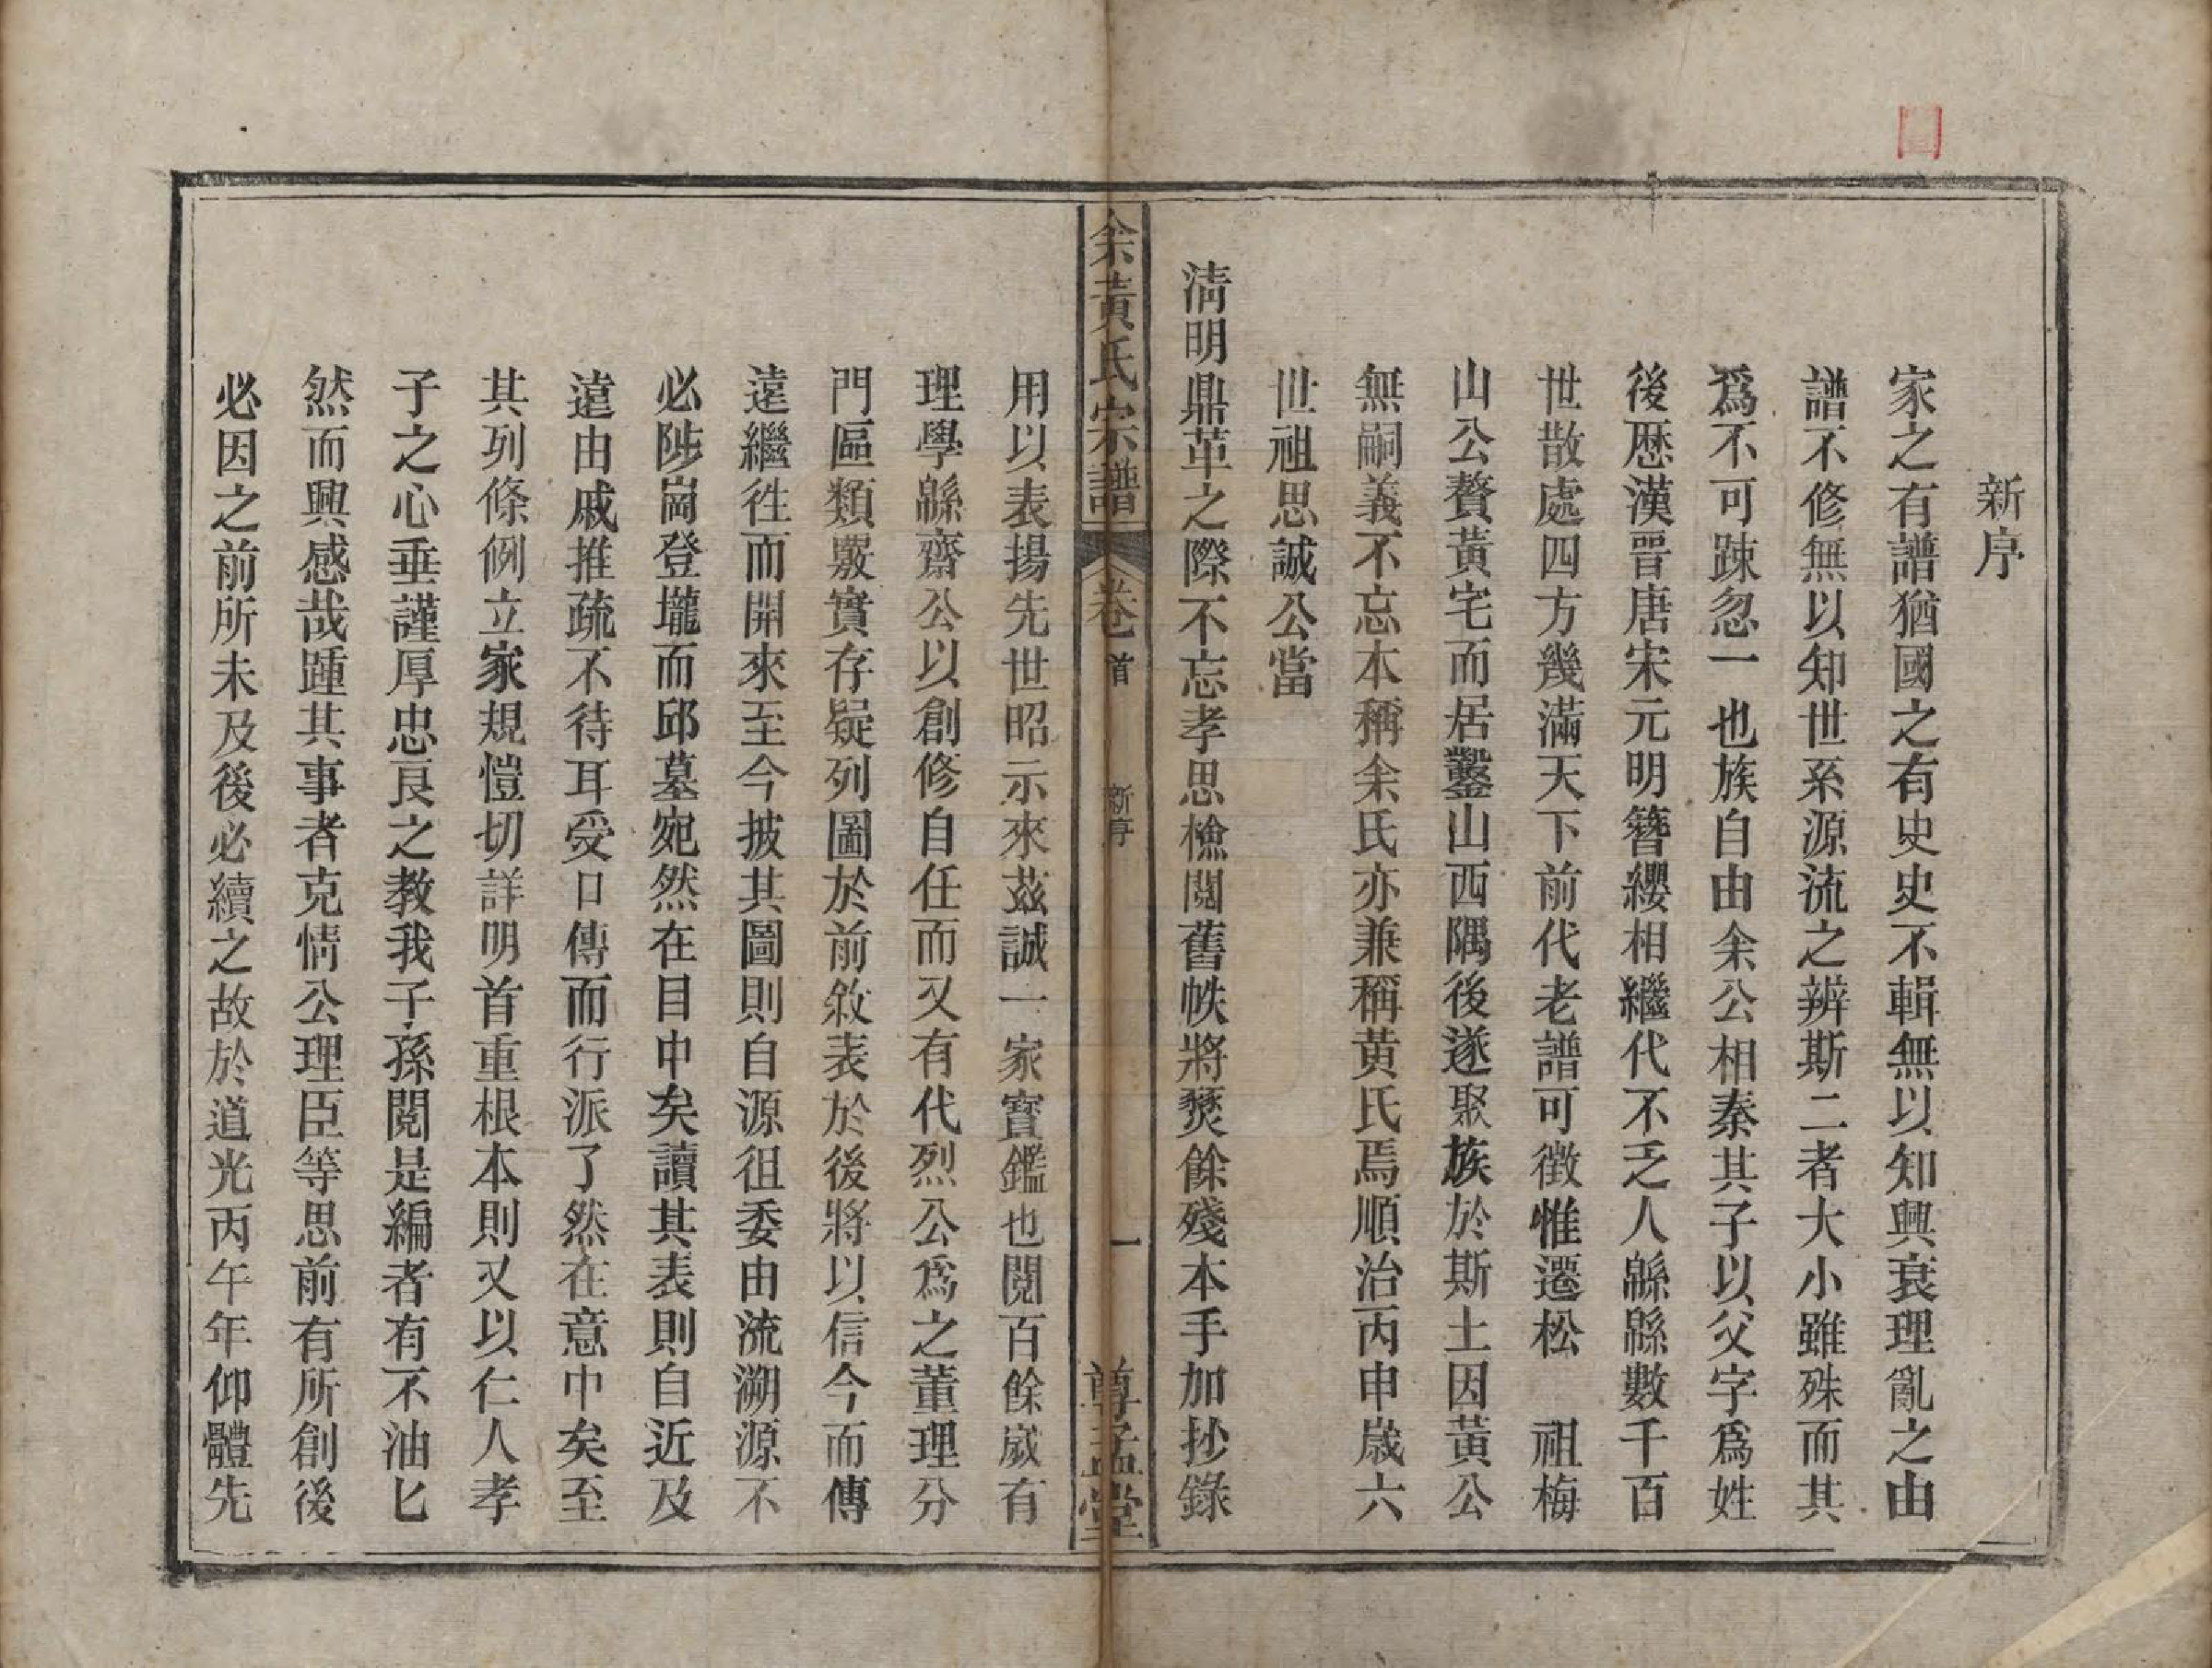 新序
家之有譜猶國之有史史不輯無以知興衰理亂之由
譜不修無以知世系源流之辨斯二者大小雖殊而其
爲不可踈忽一也族自由余公相秦其子以父字爲姓
後歷漢晋唐宋元明簪纓相繼代不乏人緜緜數千百
世散處四方幾滿天下前代老譜可徵惟遷松　祖梅
山公贅黃宅而居鑿山西隅後遂聚族於斯土因黃公
無嗣義不忘本稱余氏亦兼稱黃氏焉順治丙申歲六
世祖思誠公當
淸明鼎革之際不忘孝思檢閱舊帙將燹餘殘本手加抄錄
余黃氏宗譜　卷首　新序　一　尊孟堂
用以表揚先世昭示來茲誠一家寳鑑也閱百餘歲有
理學緜齋公以創修自任而又有代烈公爲之董理分
門區類覈實存疑列圖於前敘表於後將以信今而傳
遠繼徃而開來至今披其圖則自源徂委由流溯源不
必陟崗登壠而邱墓宛然在目中矣讀其表則自近及
遠由戚推疏不待耳受口傳而行派了然在意中矣至
其列條例立家規愷切詳明首重根本則又以仁人孝
子之心垂謹厚忠良之教我子孫閱是編者有不油匕
然而興感哉踵其事者克情公理臣等思前有所創後
必因之前所未及後必續之故於道光丙午年仰體先